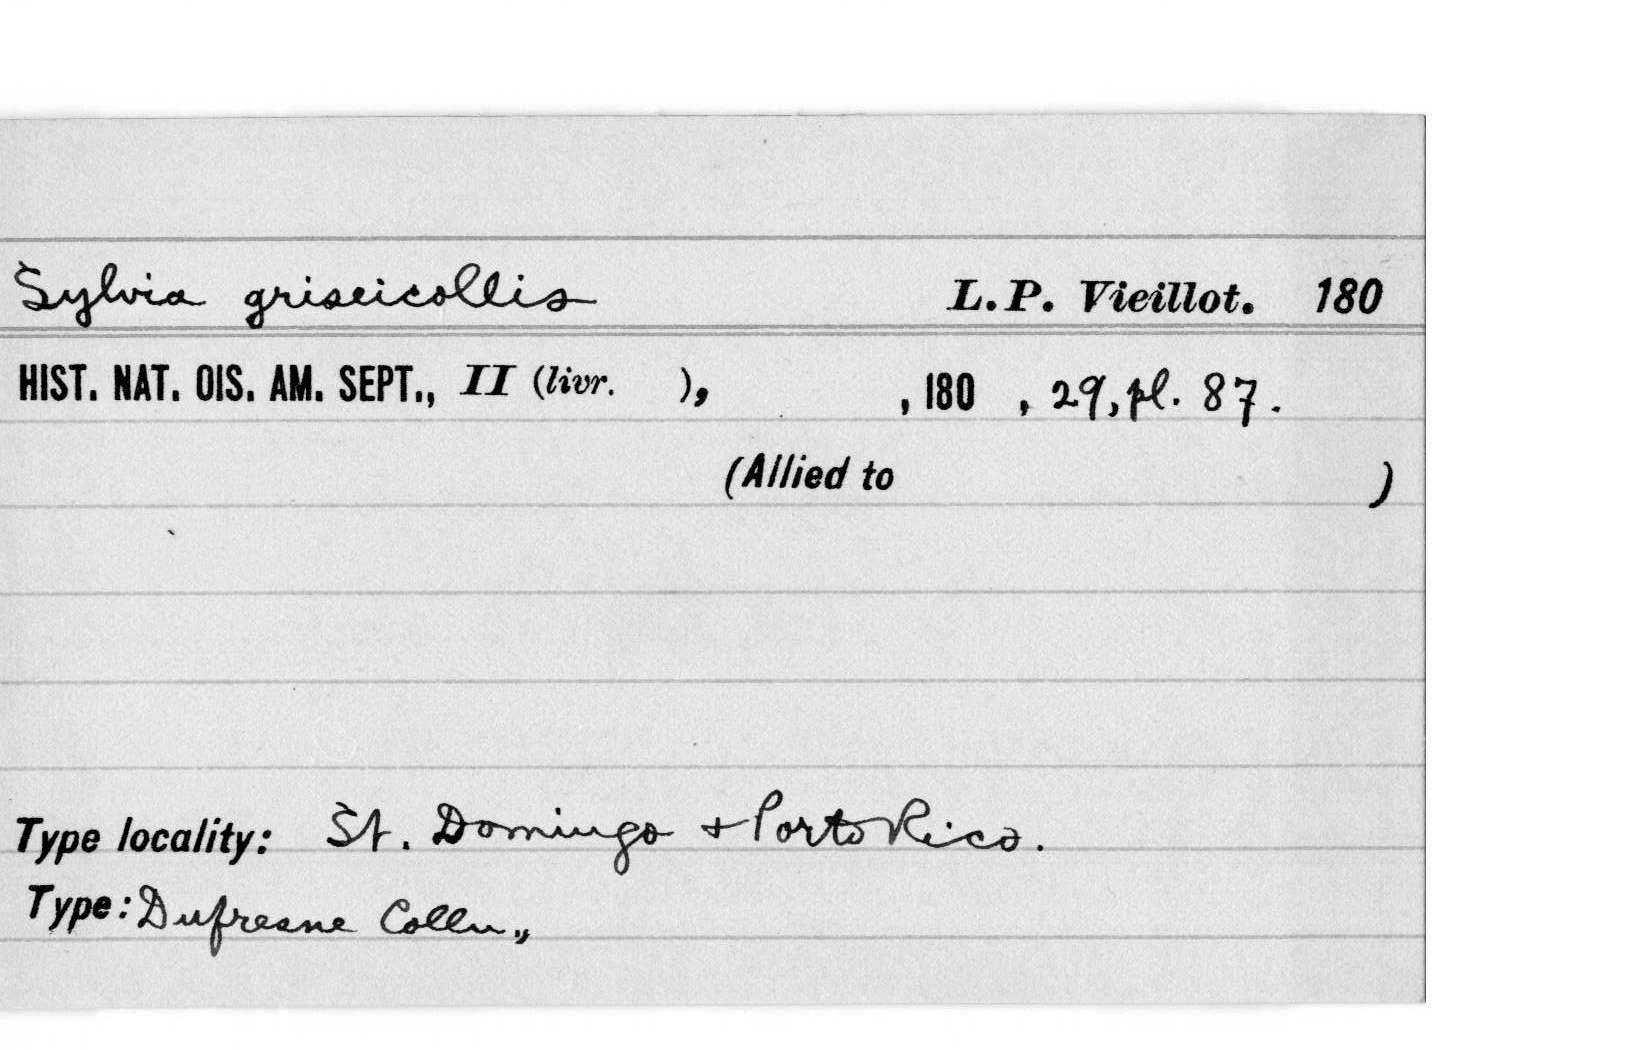 Sylvia griseicollis L.P. Vieillot. 180
HIST. NAT. OIS. AM. SEPT., II (livr. ), , 180 , 29, pl. 87.
(Allied to )
Type locality: St. Domingo + Porto Rico.
Type: Dufresne Colln.,